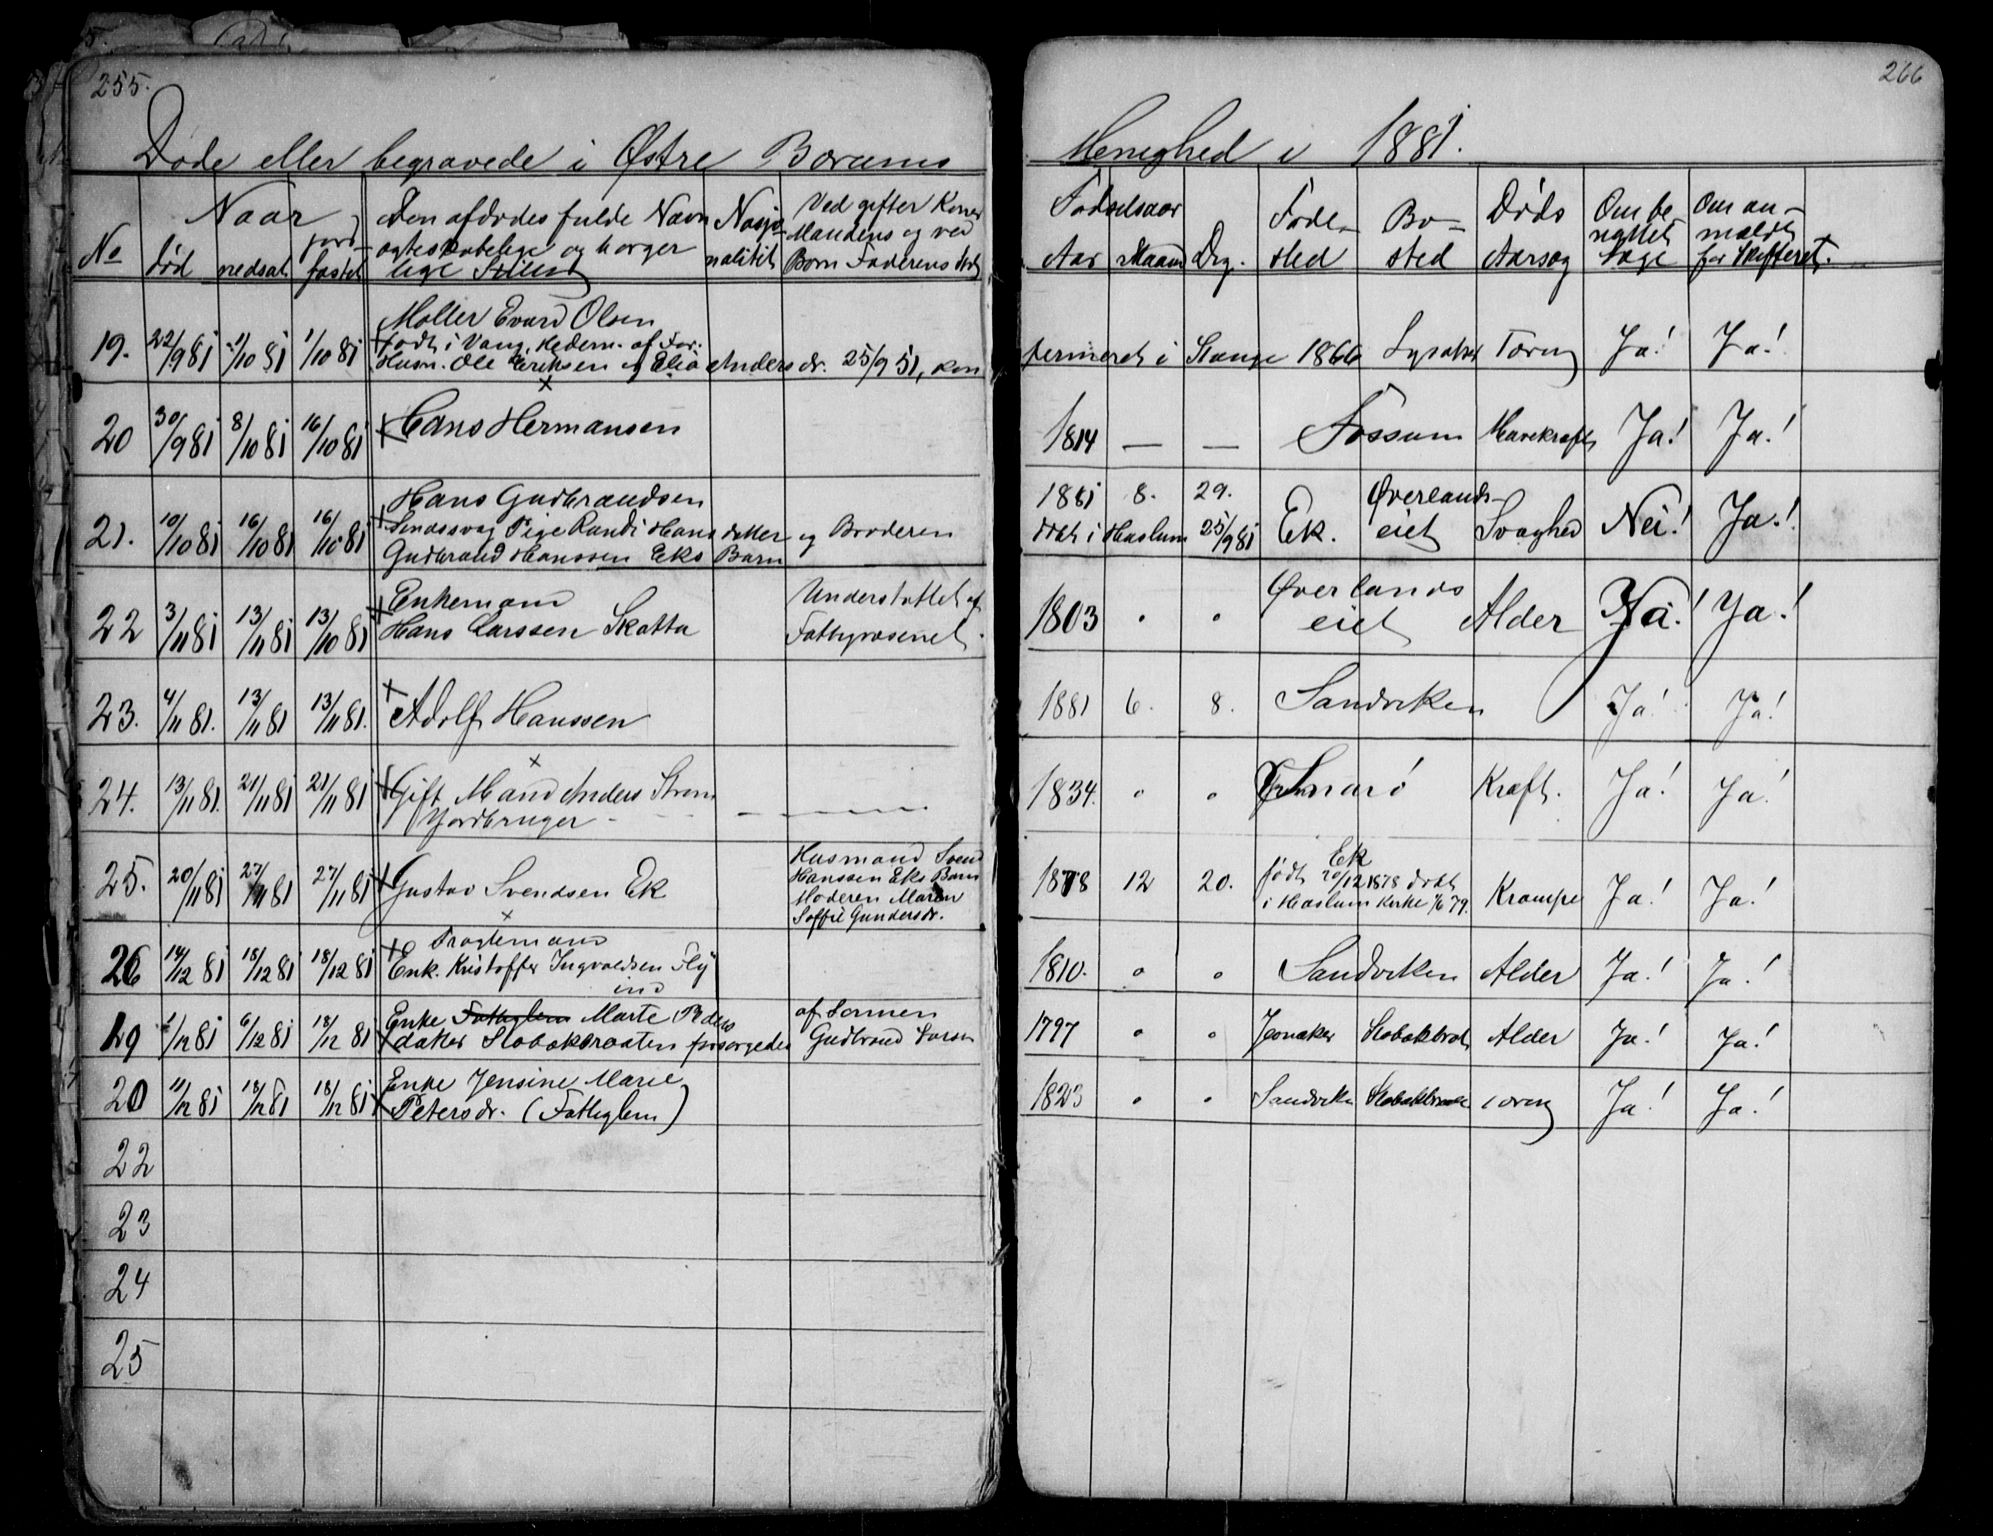 255.
Døde eller begravede i Østre Bærums
No
Naar
død
nedsat
jord-
fæstet
Den afdødes fulde Navn
ogteskabelige og borger
lige Stilling
Nasjo-
nalitit
Ved gifter Koner
Mandens og ved
Børn Faderens
19.
22/9 81
1/10 81
1/10 81
Møller Evard Olsen
født i Vang, Hedem. af For:
Husm. Ole Eriksen og Elia Anders dr. 25/9 51, kon
20
30/9 81
8/10 81
16/10 81
Hans Hermansen
21.
10/10 81
16/10 81
16/10 81
Hans Gudbrandsen
Sindssvag Pige Randi Hans datter og Broderen
Gudbrand Hanssen Eks Barn
22
3/11 81
13/11 81
13/10 81
Enkemand
Hans Larssen Skatta
Understøttet af
Fattigvæsenet.
23.
4/11 81.
13/11 81
13/11 81.
Adolf Hanssen
24.
13/11 81.
21/11 81
21/11 81
Gift Mand Anders Strøm
Jordbruger
25.
20/11 81
27/11 81
27/11 81
Gustav Svendsen Ek
Husmand Svend
Hanssen Eks Barn
Moderen Maren
Soffie Gundersdr.
26
14/12 81
18/12 81
18/12 81
Pragtemand
Enk. Kristoffer Ingvaldsen Fly
end
19
1/12 81
6/12 81
18/12 81
Enke Fattiglem Marte Peders
datter Slobækbraaten forsørgedes
af Sønnen
Gudbrand Larsen
20
11/12 81
18/12 81
18/12 81
Enke Jensine Marie
Petersdr. (Fattiglem)
22
23
24
25
266
Menighed i 1881.
Fødselsaar
Aar
Maaned
Dag.
Føde-
sted
Bo-
sted
Døds
Aarsag
Om be-
nyttet
Læge
Om an-
meldt
for Skifteret.
fermeret i Stange 1866 Lysaker Tæring Ja! Ja!
1814 — — Fossum Mavekræft Ja! Ja!
1881 8. 29. Øverlands-
døbt i Haslum 25/9 81 Ek. eiet Svaghed Nei! Ja!
1803 " " Øverlands
eiet Alder Ja! Ja!
1881 6. 8. Sandviken Ja! Ja!
1834. " " Snarø Kræft. Ja! Ja!
1878 12 20. Ek
født 20/12 1878 døbt
i Haslum Kirke 1/6 79. Krampe Ja! Ja!
1810. " " Sandviken Alder Ja! Ja!
1797 " " Jevnaker Slobækbrot Alder Ja! Ja!
1823 " " Sandviken Slobækbraate Tæring Ja! Ja!